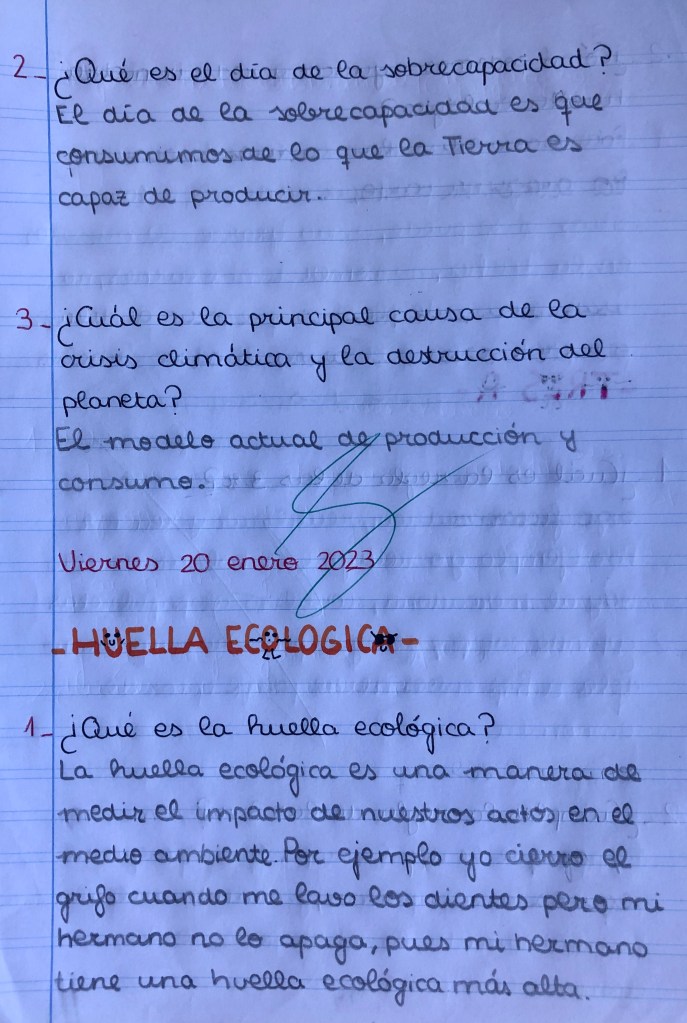 2- ¿Qué es el día de la sobrecapacidad?
El día de la sobrecapacidad es que
consumimos de lo que la Tierra es
capaz de producir.
3- ¿Cuál es la principal causa de la
crisis climática y la destrucción del
planeta?
El modelo actual de producción y
consumo.
Viernes 20 enero 2023
- HUELLA ECOLOGICA -
1- ¿Qué es la huella ecológica?
La huella ecológica es una manera de
medir el impacto de nuestros actos en el
medio ambiente. Por ejemplo yo cierro el
grifo cuando me lavo los dientes pero mi
hermano no lo apaga, pues mi hermano
tiene una huella ecológica más alta.